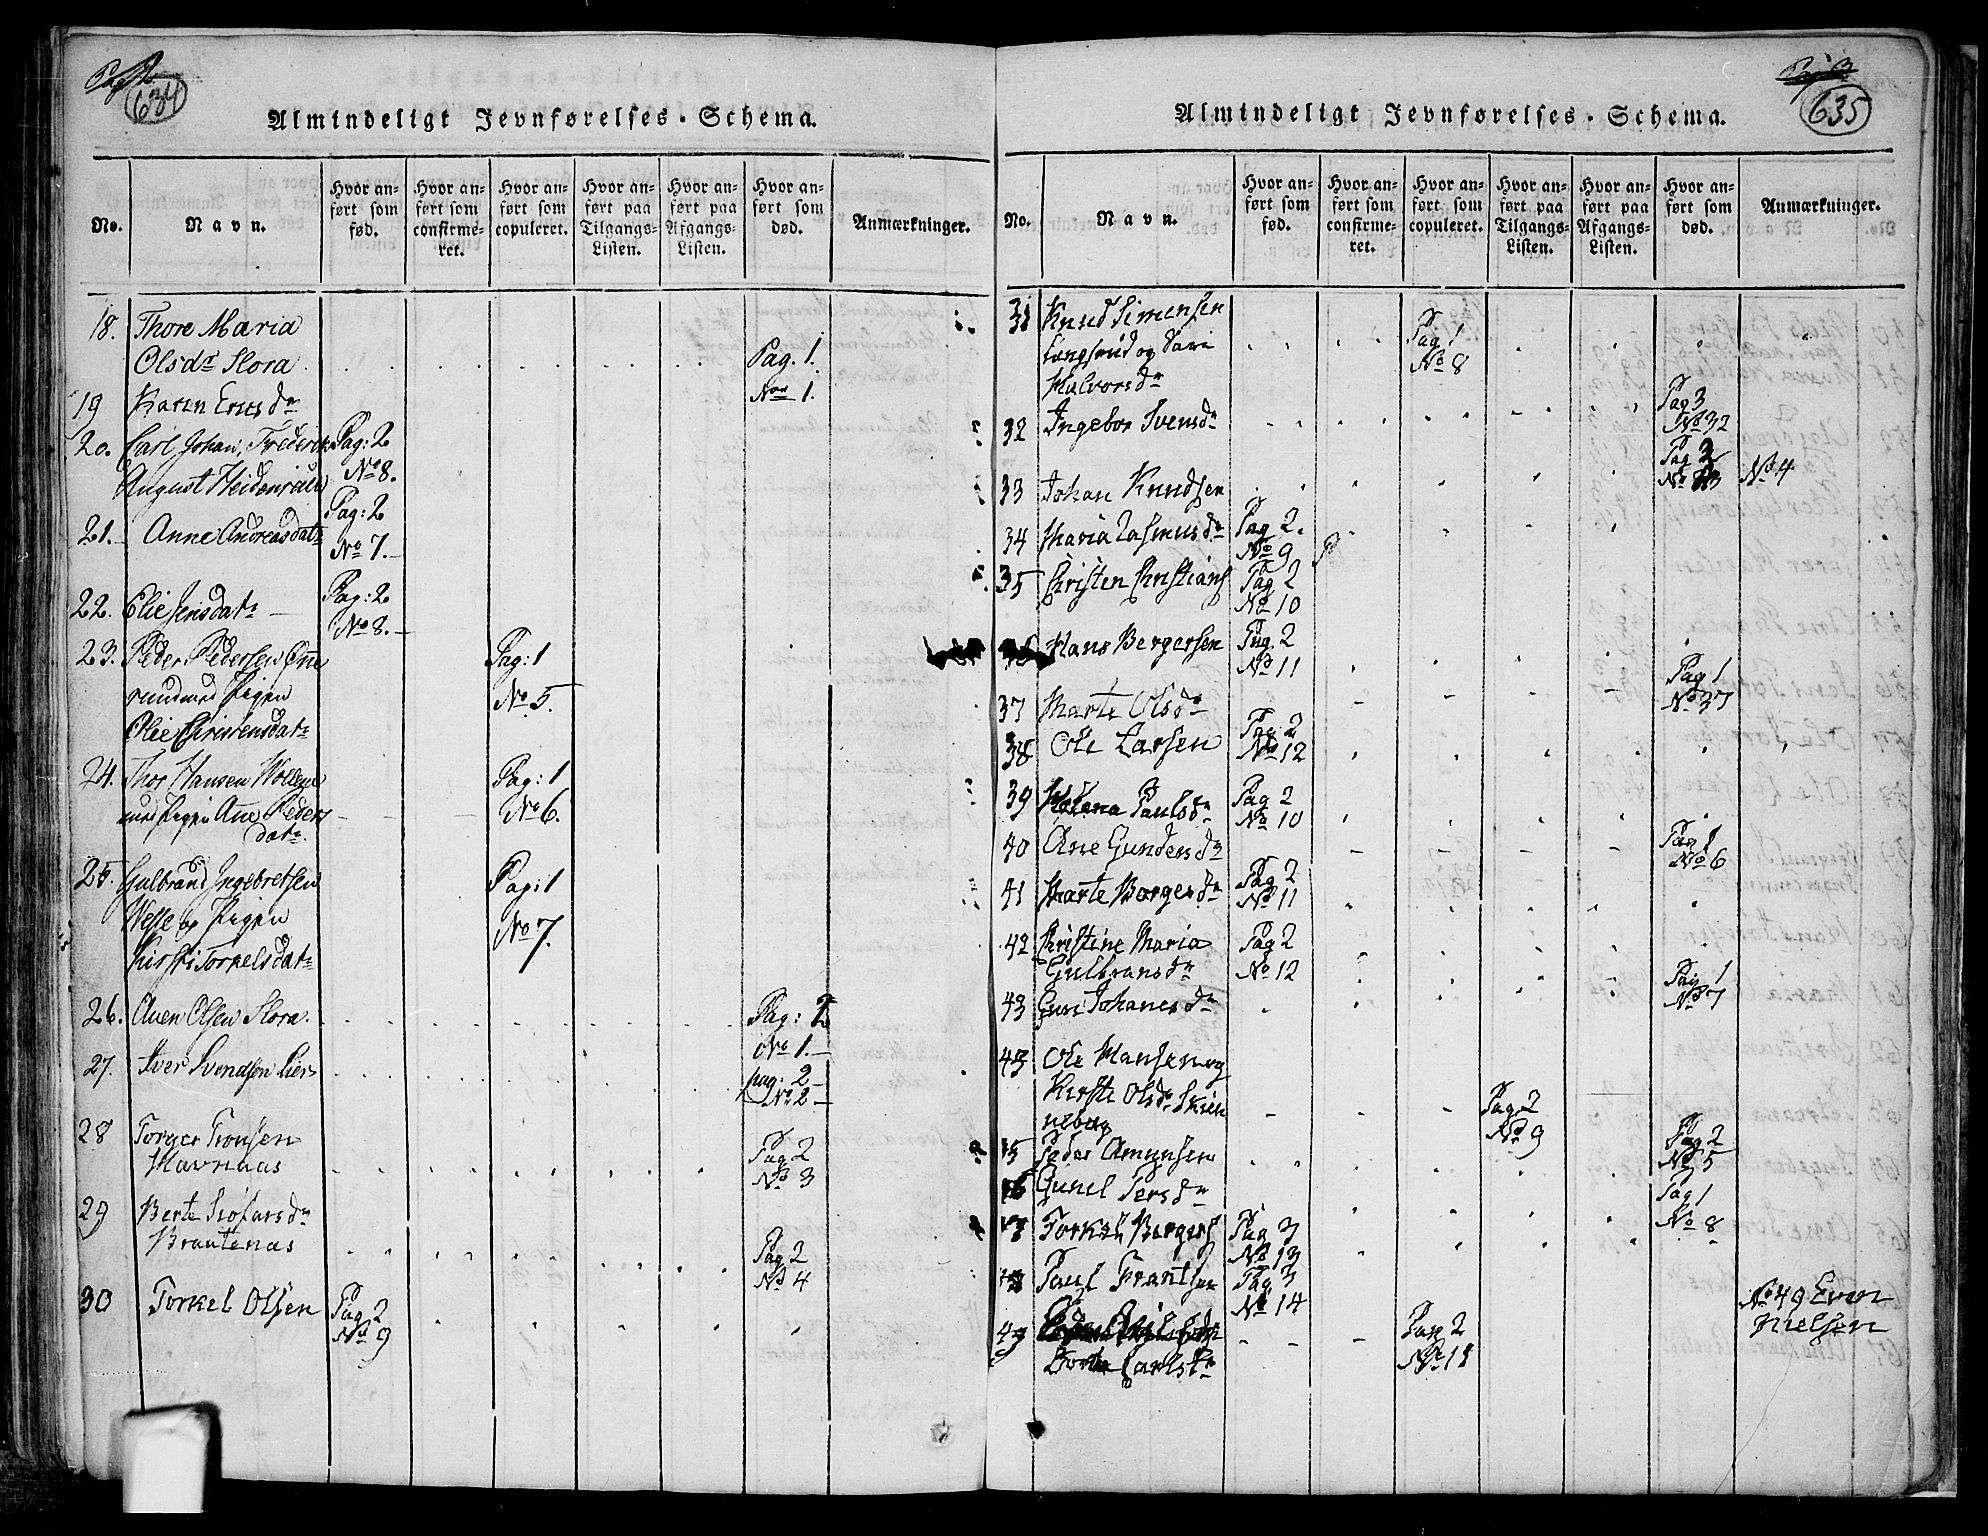 Pag 2.
634
Almindeligt Jevnførelses-Schema.
No.
Navn.
Hvor an-
ført som
fød.
Hvor an-
ført som
confirme-
ret.
Hvor an-
ført som
copuleret.
Hvor an-
ført paa
Tilgangs-
Listen.
Hvor an-
ført paa
Afgangs-
Listen.
Hvor an-
ført som
død.
Anmærkninger.
18. Thore Maria
Olsdr Slora Pag. 1.
No 1.
19 Karen Ericsdr
20. Carl Johan, Frederik Pag: 2
August Heidenrich No 8.
21. Anne Andreasdatr Pag: 2
No 7.
22. Elie Jensdatr Pag: 2
No 8.
23. Peder Pedersen Pag: 1
Pigen No 5.
Olie Christensdatr
24. Thor Hansen Pag: 1
Pigen Ane Peders No 6.
datr
25. Gulbrand Ingebretsen Pag: 1
og Pigen No 7.
Kirsti Torkelsdatr
26. Auen Olsen Slora. Pag: 2
No 1.
27. Iver Svendsen Lier pag: 2
No 2
28 Torger Tronsen Pag 2
Havnaas No 3
29 Berte Siofarsdr
Brautenas Pag 2
No 4
30 Torkel Olsen Pag 2
No 9
Pag 3
635
Almindeligt Jevnførelses-Schema.
No.
Navn.
Hvor an-
ført som
fød.
Hvor an-
ført som
confirme-
ret.
Hvor an-
ført som
copuleret.
Hvor an-
ført paa
Tilgangs-
Listen.
Hvor an-
ført paa
Afgangs-
Listen.
Hvor an-
ført som
død.
Anmærkninger.
31 Knud Simensen Pag 1
Langsrud og Sari No 8
Halvorsdr
32 Ingebor Svensdr Pag 3
No 32
33 Johan Knudsen Pag 2
No 4
34 Maria Rasmusdr Pag 2.
No 9
35 Christen Christians Pag 2
No 10
Hans Bergersen Pag. 2
No 11
37 Marte Olsdr Pag 1
No 37
38 Ole Larsen Pag 2
No 12
39 Helena Paulsdr Pag 2
No 10
40 Ane Gundersdr Pag 1
No 6
41 Marte Borgersdr Pag 2
No 11
42 Christine Maria Pag 2
Gulbransdr No 12
43 Guri Johanesdr Pag 1
No 7
43 Ole Hansen og
Kirste Olsdr Pag 2
neborg No 9
45 Peder Amunsen Pag 2
No 5
46 Gunel Persdr Pag 1
No 8
47 Torkel Borgers Pag 3
No 13
48 Paul Frantsen Pag 3
No 14
49 Pag 2
Carlsdr No 11
No 49 Even
Nielsen